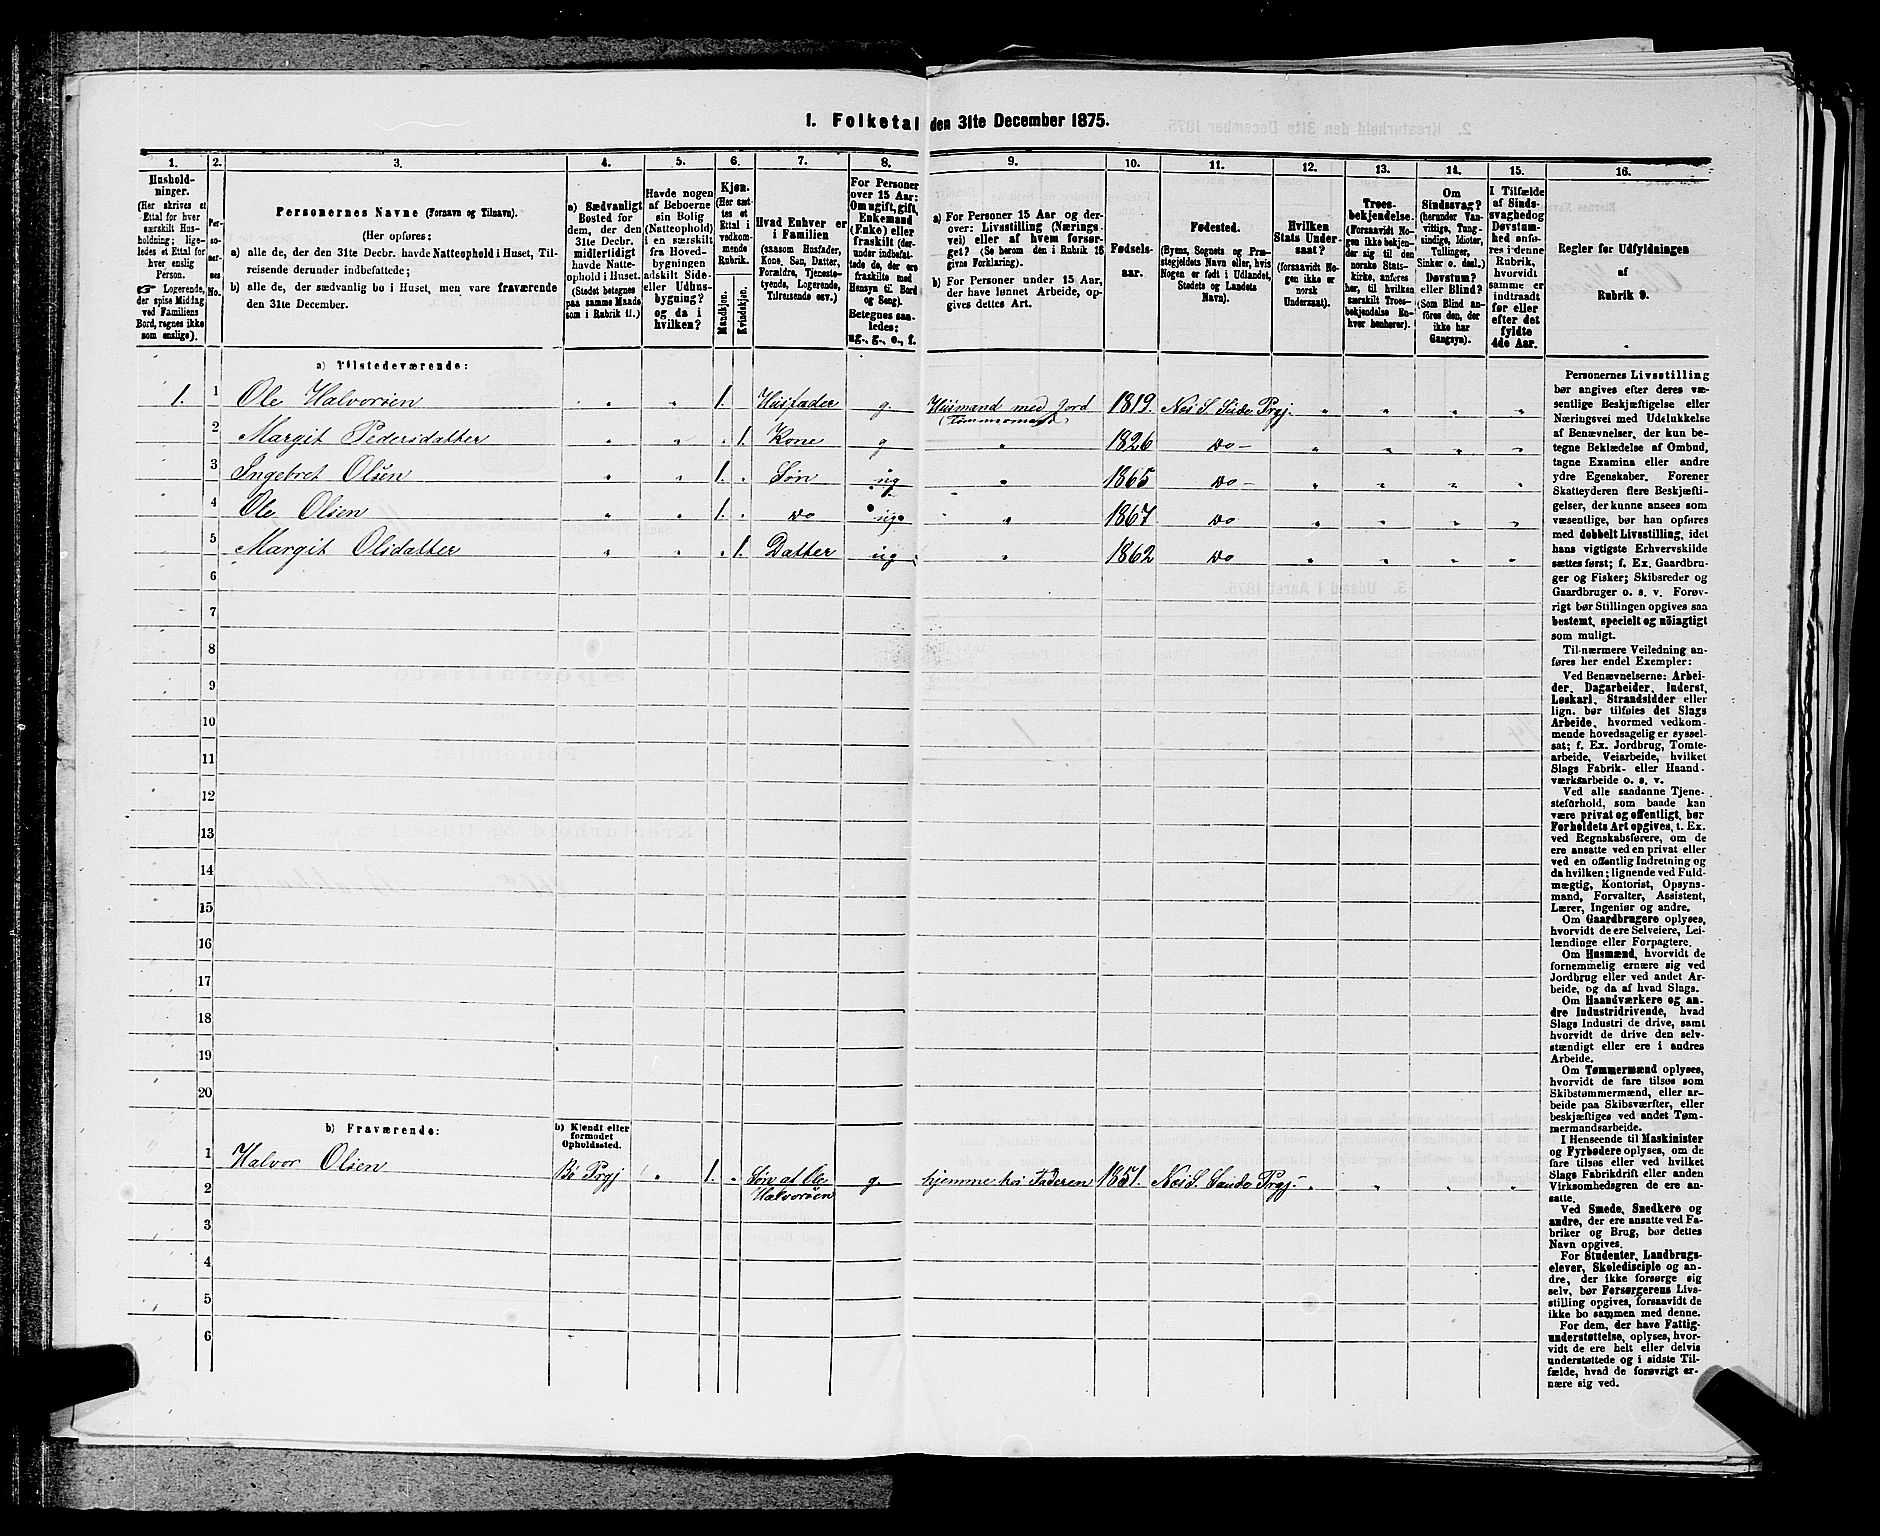 1. Folketal den 31te December 1875.
1.
2.
3.
4.
5.
6.
7.
8.
9.
10.
11.
12.
13.
14.
15.
16.
Hushold-
ninger.
(Her skrives et
Ettal for hver
særskilt Hus-
holdning; lige-
ledes et Ettal
for hver enslig
Person.
☞ Logerende,
der spise Middag
ved Familiens
Bord, regnes ikke
som enslige).
Per-
so-
ner-
nes
No.
Personernes Navne (Fornavn og Tilnavn).
(Her opføres:
a) alle de, der den 31te Decbr. havde Natteophold i Huset, Til-
reisende derunder indbefattede;
b) alle de, der sædvanlig bo i Huset, men vare fraværende
den 31te December.
a) Sædvanligt
Bosted for
dem, der den
31te Decbr.
midlertidigt
havde Natte-
ophold i Huset.
(Stedet betegnes
paa samme Maade
som i Rubrik 11.)
Havde nogen
af Beboerne
sin Bolig
(Natteophold)
i en særskilt
fra Hoved-
bygningen
adskilt Side-
eller Udhus-
bygning?
og da i
hvilken?
Kjøn.
(Her sæt-
tes et
Ettal i
vedkom-
mende
Rubrik.
Mandkjøn.
Kvindekjøn.
Hvad Enhver er
i Familien
(saasom Husfader,
Kone, Søn, Datter,
Forældre, Tjeneste-
tyende, Logerende,
Tilreisende osv.)
For Personer
over 15 Aar:
Om ugift, gift,
Enkemand
(Enke) eller
fraskilt (der-
under indbefat-
tede de, der ere
fraskilte med
Hensyn til Bord
og Seng).
Betegnes saa-
ledes:
ug., g., e., f.
a) For Personer 15 Aar og der-
over: Livsstilling (Nærings-
vei) eller af hvem forsør-
get? (Se herom i Rubrik 16
givne Forklaring).
b) For Personer under 15 Aar,
der have lønnet Arbeide, op-
gives dettes Art.
Fødsels-
aar.
Fødested.
(Byens, Sognets og Præ-
stegjeldets Navn eller, hvis
Nogen er født i Udlandet,
Stedets og Landets
Navn).
Hvilken
Stats Under-
saat?
(forsaavidt No-
gen ikke er
norsk
Undersaat).
Troes-
bekjendelse.
(Forsaavidt No-
gen ikke bekjen-
der sig til den
norske Stats-
kirke, anføres
her, til hvilken
særskilt Troes-
bekjendelse En-
hver henhører).
Om
Sindssvag?
(herunder Van-
vittige, Tung-
sindige, Idioter,
Tullinger,
Sinker o. desl.)
Døvstum?
eller Blind?
(Som Blind an-
føres den, der
ikke har
Gangsyn).
I Tilfælde
af Sinds-
svaghed og
Døvstum-
hed anfø-
res i denne
Rubrik,
hvorvidt
samme er
indtraadt
før eller
efter det
fyldte
4de Aar.
Regler for Udfyldningen
af
Rubrik 9.
a) Tilstedeværende:
1. 1 Ole Halvorsen " " 1. Husfader g. Husmand med Jord 1819. Nes S. Sude Prgj. " " " "
(Tømmermand)
2 Margit Pedersdatter " " " 1. Kone g " 1826 Do - " " " "
3 Ingebret Olsen " " 1. " Søn ug " 1865 Do - " " " "
4 Ole Olsen " " 1. " Do ug " 1867 Do " " " "
5 Margit Olsdatter " " " 1. Datter ug " 1862 Do " " " "
6
7
8
9
10
11
12
13
14
15
16
17
18
19
20
b) Fraværende:
b) Kjendt eller
formodet
Opholdssted.
1 Halvor Olsen Bö Prgj " 1. " Søn af Ole g hjemme hos Faderen 1851. Nes S. Saude Prgj. " " " "
Halvorsen
2
3
4
5
6
Personernes Livsstilling
bør angives efter deres væ-
sentlige Beskjæftigelse eller
Næringsvei med Udelukkelse
af Benævnelser, der kun be-
tegne Beklædelse af Ombud,
tagne Examina eller andre
ydre Egenskaber. Forener
Skatteyderen flere Beskjæfti-
gelser, der kunne ansees som
væsentlige, bør han opføres
med dobbelt Livsstilling, idet
hans vigtigste Erhvervskilde
sættes først; f. Ex. Gaardbru-
ger og Fisker; Skibsreder og
Gaardbruger o. s. v. Forøv-
rigt bør Stillingen opgives saa
bestemt, specielt og nöiagtigt
som muligt.
Til nærmere Veiledning an-
føres her endel Exempler:
Ved Benævnelserne: Arbei-
der, Dagarbeider, Inderst,
Løskarl, Strandsidder eller
lign. bør tilføies det Slags
Arbeide, hvormed vedkom-
mende hovedsagelig er syssel-
sat; f. Ex. Jordbrug, Tomte-
arbeide, Veiarbeide, hvilket
Slags Fabrik- eller Haand-
værksarbeide o. s. v.
Ved alle saadanne Tjene-
steforhold, som baade kan
være privat og offentligt, bør
Forholdets Art opgives, t. Ex.
ved Regnskabsførere, om de
ere ansatte ved en privat eller
ved en offentlig Indretning og
da hvilken; lignende ved Fuld-
mægtig, Kontorist, Opsyns-
mand, Forvalter, Assistent,
Lærer, Ingeniør og andre.
Om Gaardbrugere oplyses,
hvorvidt de ere Selveiere, Lei-
lændinge eller Forpagtere.
Om Husmænd, hvorvidt de
fornemmelig ernære sig ved
Jordbrug eller ved andet Ar-
beide, og da af hvad Slags.
Om Haandværkere og an-
dre Industridrivende, hvad
Slags Industri de drive, samt
hvorvidt de drive den selv-
stændigt eller ere i andres
Arbeide.
Om Tømmermænd oplyses,
hvorvidt de fare tilsøs som
Skibstømmermænd, eller ar-
beide paa Skibsværfter, eller
beskjæftiges ved andet Tøm-
mermandsarbeide.
I Henseende til Maskinister
og Fyrbødere oplyses, om de
fare tilsøs eller ved hvilket
Slags Fabrikdrift eller anden
Virksomhedsgren de ere an-
satte.
Ved Smede, Snedkere og
andre, der ere ansatte ved Fa-
briker og Brug, bør dettes
Navn opgives.
For Studenter, Landbrugs-
elever, Skoledisciple og an-
dre, der ikke forsørge sig
selv, bør Forsørgerens Livs-
stilling opgives, forsaavidt de
ikke bo sammen med denne.
For dem, der have Fattig-
understøttelse, oplyses, hvor-
vidt de ere helt eller delvis
understøttede og i sidste Til-
fælde, hvad de forøvrigt er-
nære sig ved.